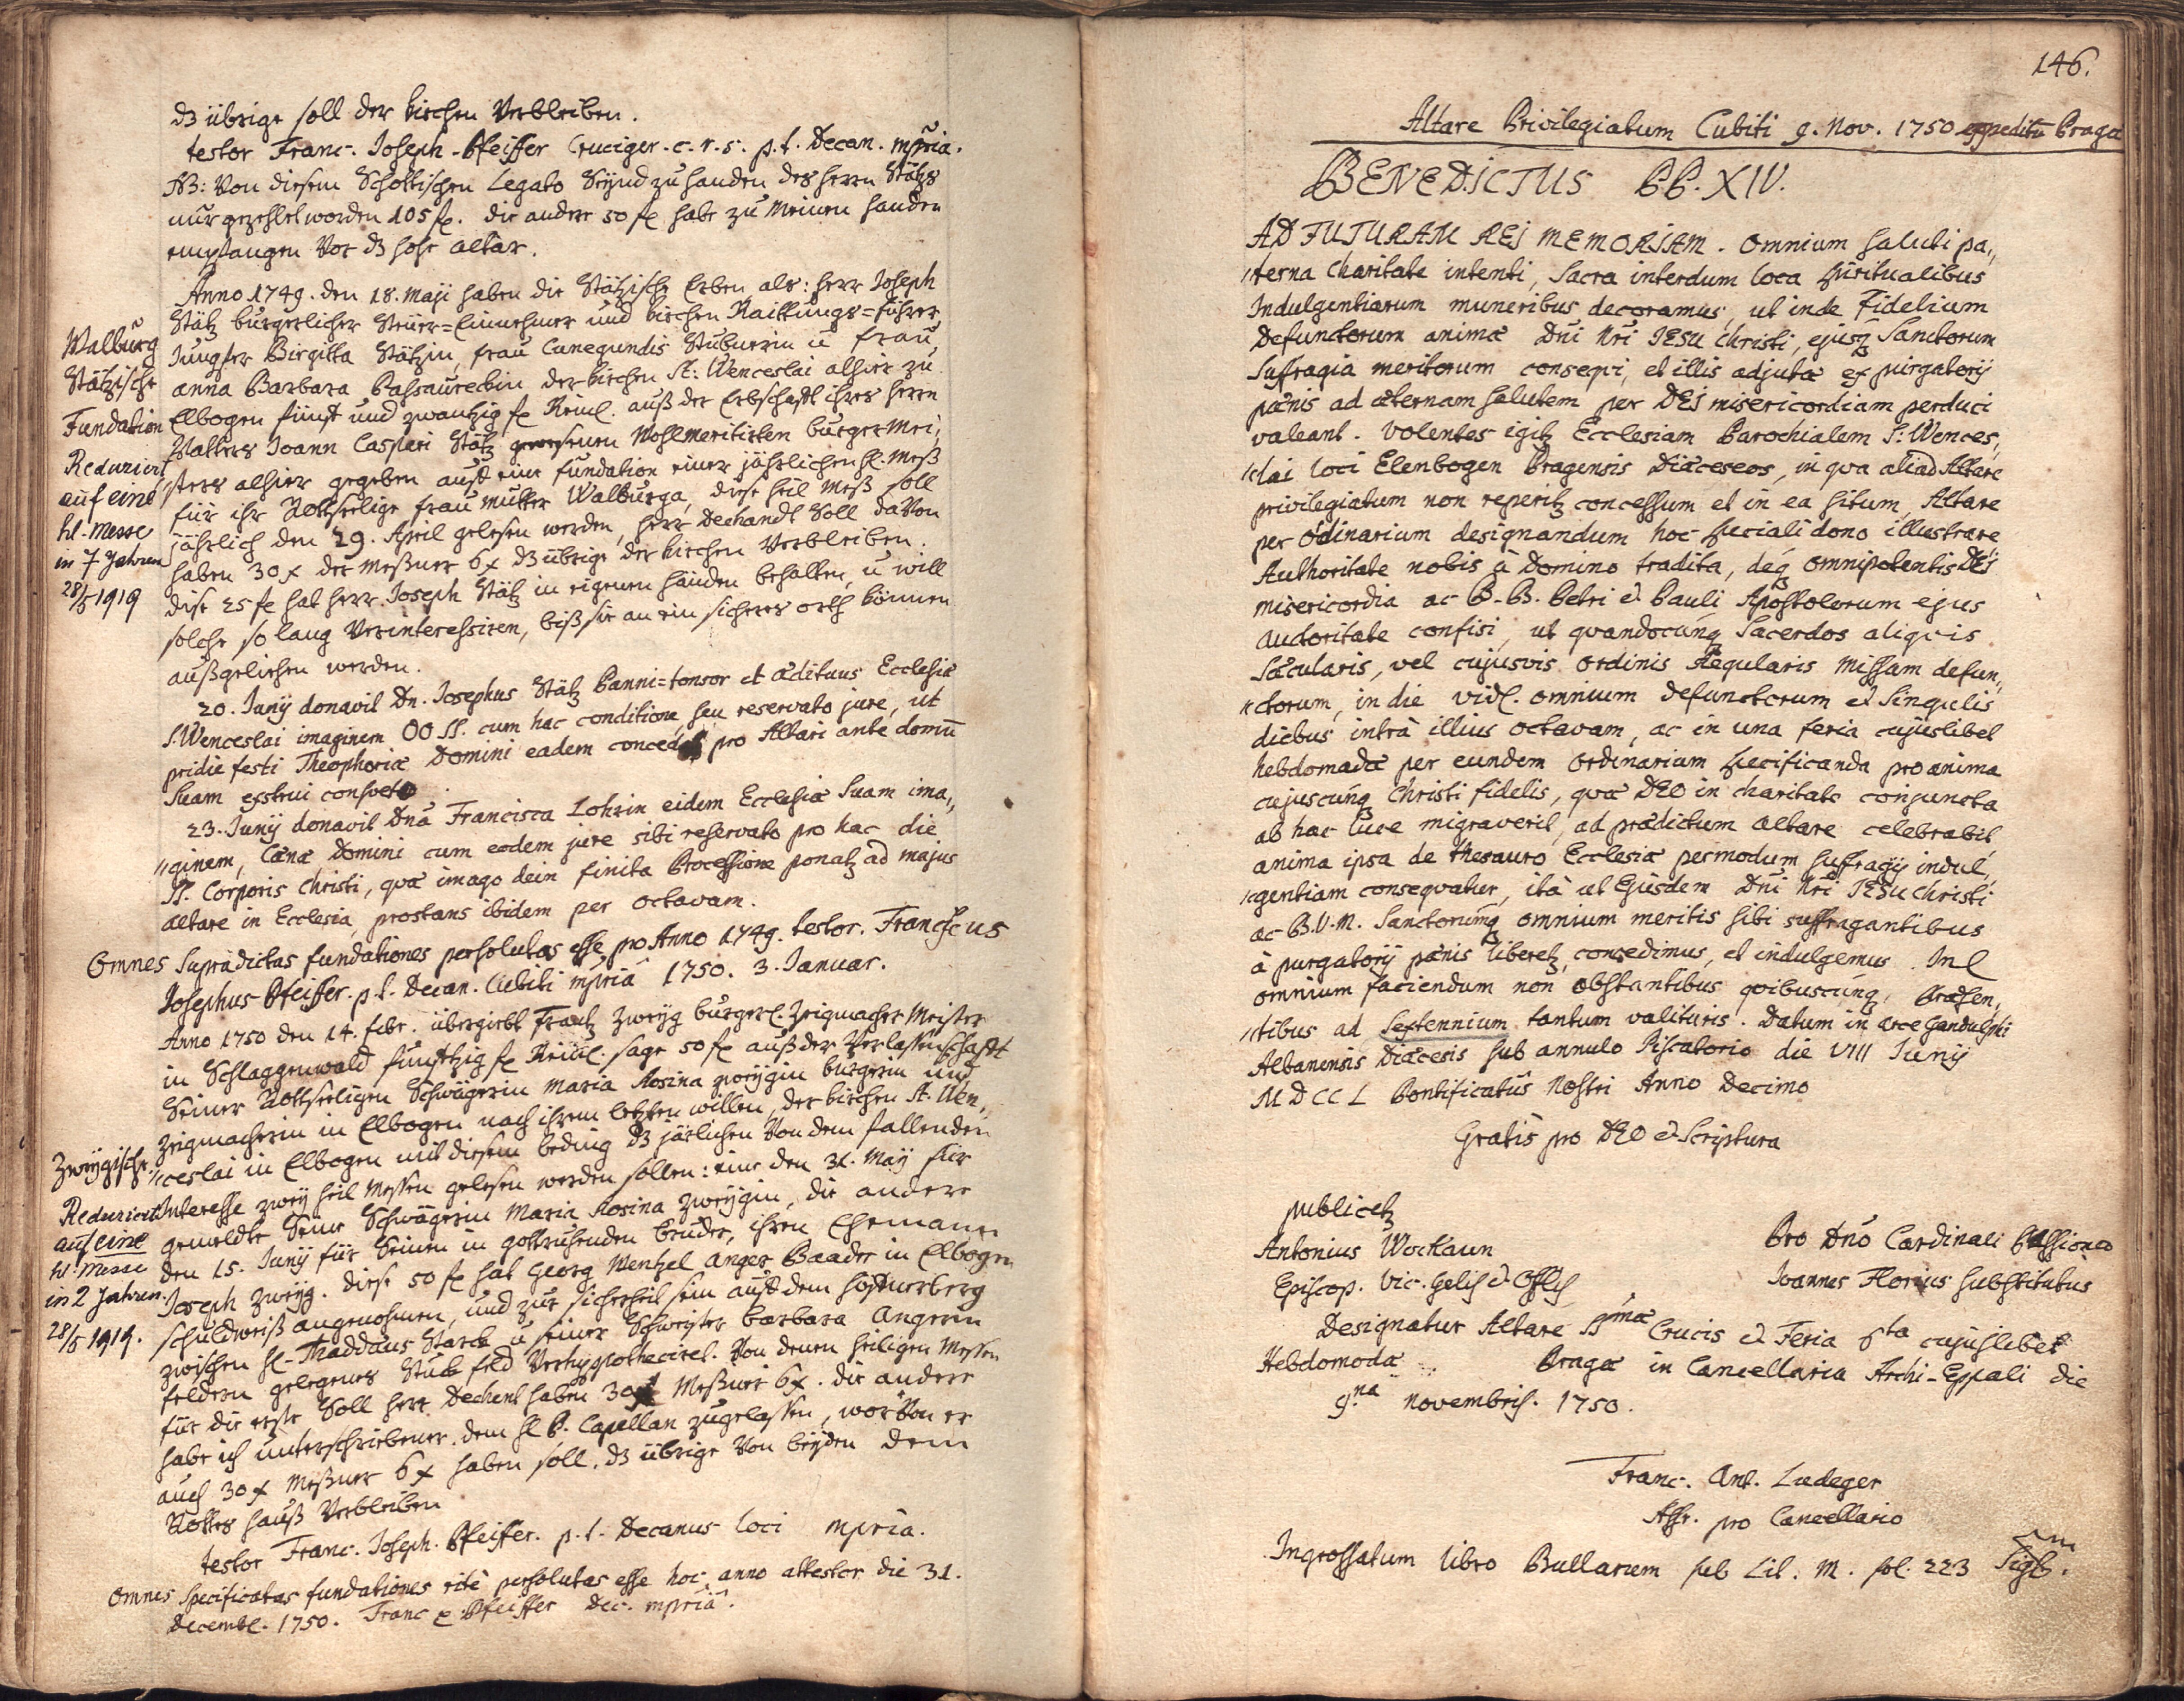 dz übrige soll der kirchen Verbleiben.
testor Franc. Joseph Pfeiffer Cruciger. c. r. s. p. t. Decan. mpria.
NB: Von diesem Schottischen Legato Seynd zu handen des herrn Stätz
nur gezehlet worden 105 fl. die andere 50 fl habe zu Meinen handen
empfangen Vor dz hohe altar.
Anno 1749. den 18. Maji haben die Stätzische Erben als: herr Joseph
Stätz burgerlicher Steüer=Einnehmer und kirchen Raittungs=führer
Jungfer Birgitta Stätzin, frau Cunegundis Stüburin ū frau
anna Barbara der kirchen St: Wenceslai alhier zu
Elbogen fünf und zwantzig fl Reinl. auß der Erbschaft ihres herrn
Vatters Joann Casperi Stätz gewesenen Wohlmeritirten burgermei„
sters alhier gegeben auf eine fundation einer jährlichen hl. Meß
für ihr Gottseelige frau mutter Walburga, diese heil Meß soll
jährlich den 29. April gelesen werden, herr Dechandt Soll daVon
haben 30 x der Meßner 6 x dz übrige der kirchen Verbleiben.
dise 25 fl hat herr Joseph Stätz in eigenen händen behalten, ū will
solche so lang Verinteressiren, biß sie an ein sicheres orth können
außgeliehen werden.
Walburg
Stätzische
Fundation
Reduziert
auf eine
hl. Messe
in 7 Jahren
28/5 1919
20. Junij donavit Dn. Josephus Stätz Panni=tonsor et ædituus Ecclesiæ
S. Wenceslai imaginem OO SS. cum hac conditione, seu reservato jure, ut
pridie festi Theophoriæ Domini eadem pro Altari ante domū
Suam exstrui
23. Junij donavit Dnā Francisca Lohrin eidem Ecclesiæ Suam ima„
„ginem, Cænæ Domini cum eodem jure sibi reservato pro hac die
SS. Corporis Christi, quæ imago dein finita Processione ponatz ad majus
altare in Ecclesia, prostans ibidem per octavam.
Omnes Supradictas fundationes persolutas esse, pro Anno 1749. testor. Franciscus
Josephus Pfeiffer. p. t. Decan. Cubiti mpriā 1750. 3. Januar.
Anno 1750 den 14. febr. übergiebt Frantz Zweyg burgerl. Zeigmacher Meister
in Schlaggenwald funftzig fl Reinl. sage 50 fl auß der Verlassenschaft
Seiner Gottseeligen Schwägerin Maria Rosina Zweygin burgerin und
Zeigmacherin in Elbogen nach ihrem letzten willen, der kirchen St. Wen„
„ceslai in Elbogen mit diesem beding dz järlichen Von dem fallenden
Interesse zwey heil Messen gelesen werden sollen: eine den 31. May für
gemeldte Seine Schwägerin Maria Rosina Zweygin, die andere
den 15. Junij für Seinen in gottruhenden bruder, ihren Ehemann
Joseph Zweyg. diese 50 fl hat Georg Wentzel Anger Baader in Elbogen
schuldweiß angenohmen, und zur sicherheit sein auf dem
zwischen hl. Thaddäus Starck ū seiner Schwester barbara Angerin
feldern gelegenes Stuck feld Verhypotheciret. Von denen heiligen Messen
für die erste Soll herr Dechent haben 30 x Meßner 6 x. die andere
habe ich unterschriebener dem hl P. Capellan zugelassen, worVon er
auch 30 x Meßner 6 x haben soll. dz übrige Von beyden dem
Gottes hauß Verbleiben
Zweygische.
Reduziert
auf eine
hl. Messe
in 2 Jahren.
28/5 1919.
testor Franc. Joseph. Pfeiffer. p. t. Decanus loci mpria.
Omnes Specificatas fundationes rite persolutas esse hoc anno attestor die 31.
Decembr. 1750. Franc Pfeiffer Dec. mpriā.
146.
Altare Privilegiatum Cubiti 9. Nov. 1750 expeditū Praga
BENEDICTUS P.P. XIV.
AD FUTURAM REI MEMORIAM. Omnium saluti pa„
„terna Charitate intenti, Sacra interdum loca spiritualibus
Indulgentiarum muneribus decoramus, ut inde Fidelium
Defunctorum animæ Dñi Nri JESU Christi, ejusq Sanctorum
Suffragia meritorum conseqvi, et illis adjutæ ex purgatorij
pænis ad æternam salutem per DEI misericordiam perduci
valeant. Volentes igitz Ecclesiam Parochialem S: Wences„
„lai loci Elenbogen Pragensis Diæceseos, in qva aliud Altare
privilegiatum non reperitz concessum et in ea situm, Altare
per Ordinarium designandum hoc speciali dono illustrare
Authoritate nobis à Domino tradita, deq omnipotentis DEI
misericordia ac B.B. Petri & Pauli Apostolorum ejus
audoritate confisi, ut qvandocunq Sacerdos aliqvis
Sæcularis, vel cujusvis ordinis Regularis Missam defun„
„ctorum, in die vidl. omnium defunctorum & Singulis
diebus intrà illius octavam, ac in una feria cujuslibet
hebdomadæ per eundem ordinarium specificanda pro anima
cujuscunq Christi fidelis, qvæ DEO in charitate conjuncta
ab hac luce migraverit, ad prædictum altare celebrabit
anima ipsa de thesauro Ecclesiæ per modum suffragij indul„
„gentiam conseqvatur, ità ut Ejusdem Dñi Nri JESU Christi
ac B.V.M. Sanctorumq omnium meritis sibi suffragantibus
à purgatorij pænis liberetz, concedimus, et indulgemus. In
omnium faciendum non obstantibus qvibuscunq. Præsen„
„tibus ad Septennium tantum valituris. Datum in arce Gandulphi
Albanensis Diæcesis sub annulo Piscatorio die VIII Junij
MDCCL Pontificatûs Nostri Anno Decimo
Gratis pro DEO & Scriptura
publicetz
Antonius Wockaun
Episcop. Vic. Gelis & Offlis
Pro Dño Cardinali Passioneo
Joannes Florius Substitutus
Designatur Altare SSmæ Crucis & Feria 6ta cujuslibet
Hebdomodæ Pragæ in Cancellaria Archi-Eppali die
9.na novembris. 1750.
Franc. Ant. Ludeger
Assr. pro Cancellario
Ingrossatum libro Bullarum sub Lit. M. fol. 223 Sigb.